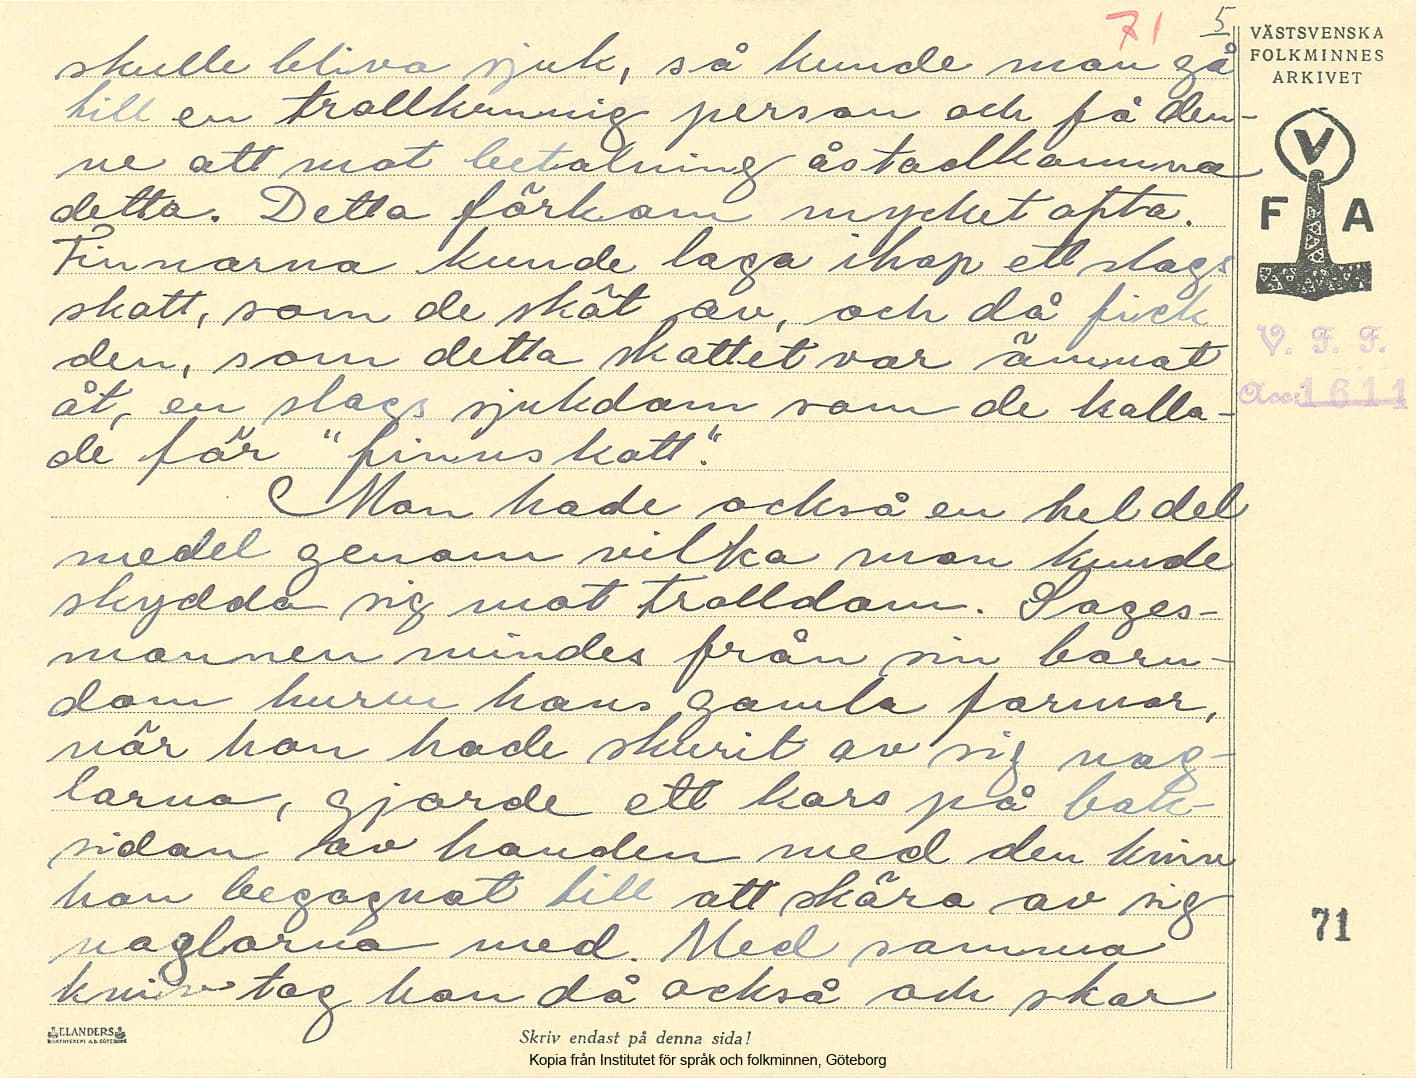 71 5
VÄSTSVENSKA
FOLKMINNES
ARKIVET
V
F A
V. F. F.
Acc. 1611
skulle bliva sjuk, så kunde man gå
till en trollkunnig person och få den-
ne att mot betalning åstadkomma
detta. Detta förkom mycket ofta.
Finnarna kunde laga ihop ett slags
skott, som de sköt av, och då fick
den, som detta skottet var ämnat
åt, en slags sjukdom som de kalla-
de för "finnskott".
Man hade också en hel del
medel genom vilka man kunde
skydda sig mot trolldom. Sages-
mannen mindes från sin barn-
dom huru hans gamla farmor,
när hon hade skurit av sig nag-
larna, gjorde ett kors på bak-
sidan av handen med den kniv
hon begagnat till att skära av sig
naglarna med. Med samma
kniv tog hon då också och skar
71
ELANDERS
BOKTRYCKERI A.B. GÖTEBORG
Skriv endast på denna sida!
Kopia från Institutet för språk och folkminnen, Göteborg